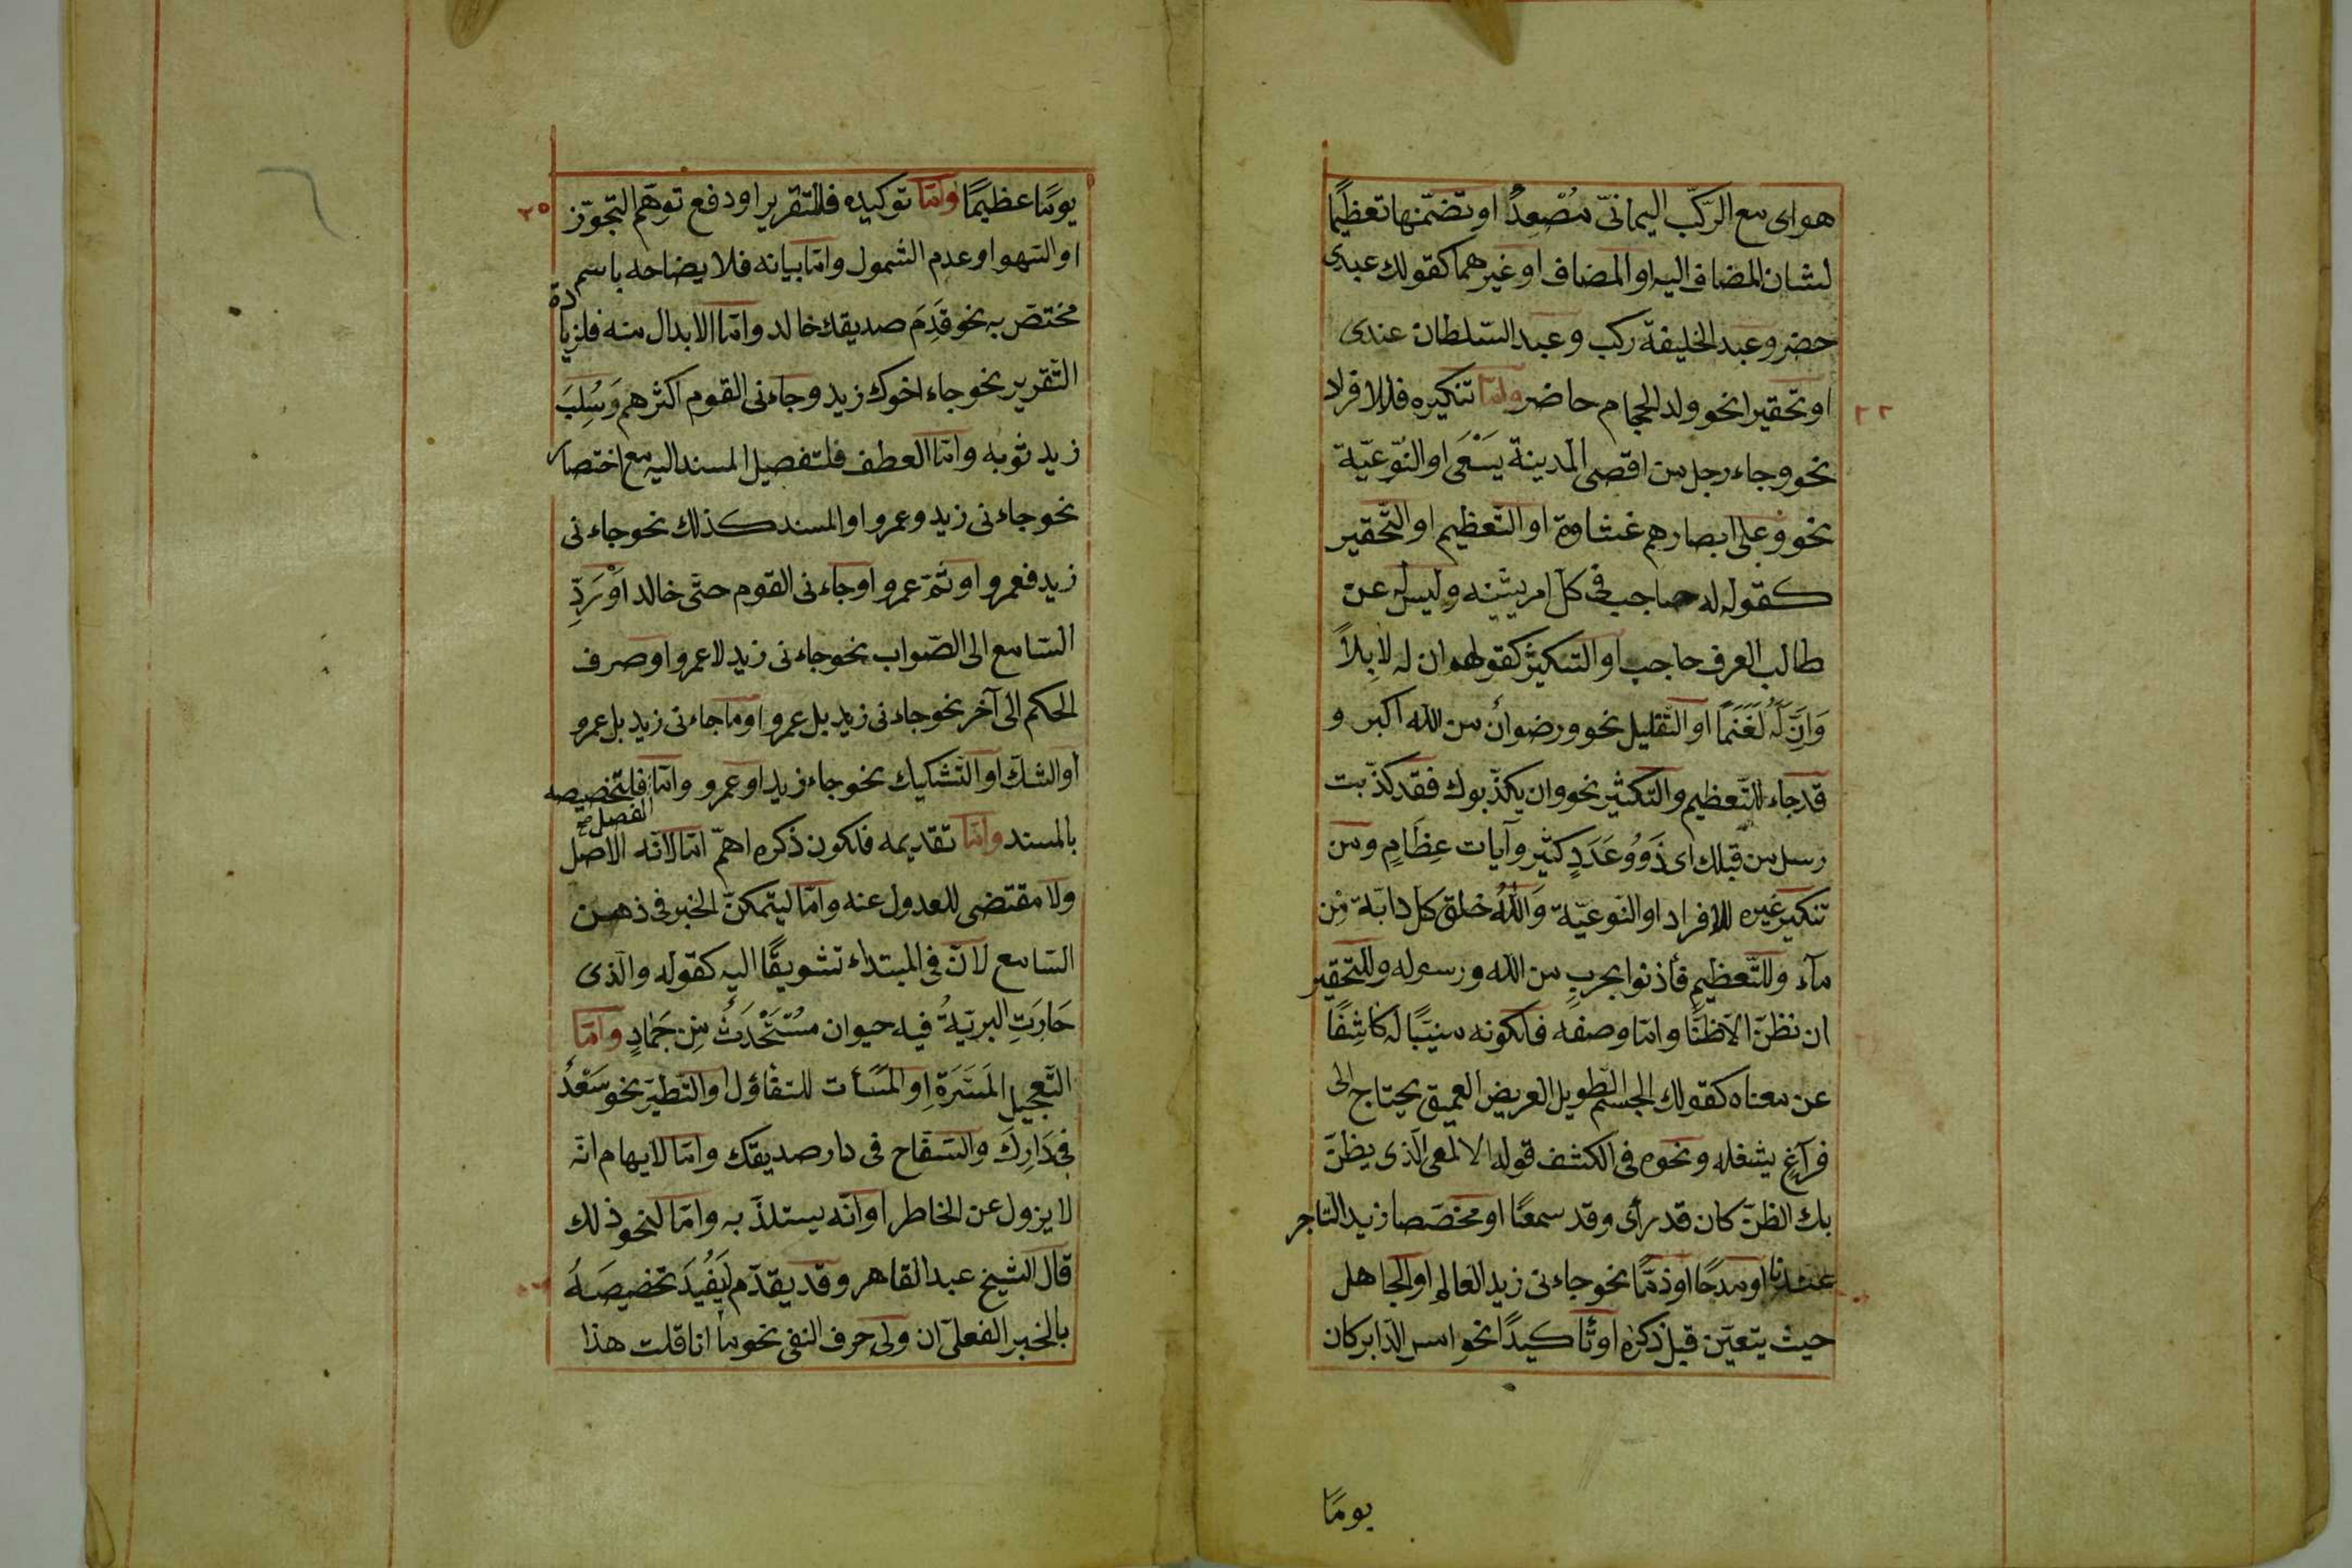 هوای مع الرّکب الیمانیّ مُصْعِدٌ او تضمّنها تعظیمًا
لشان المضاف الیه او المضاف او غیرهما کقولك عبدی
حضر وعبد الخلیفة رکب وعبد السّلطان عندی
او تحقیرا نحو ولد الحجام حاضر وامّا تنکیره فللافراد
نحو وجاء رجل من اقصی المدینة یَسْعَی او النّوعیّة
نحو وعلی ابصارهم غشاوة او التّعظیم او التّحقیر
کقوله له حاجب فی کل امر یشینه ولیس له عن
طالب العرف حاجب او التکثیر کقولهم ان له لابلاً
وَاِنَّ لَهُ لَغَنَمًا او التّقلیل نحو ورضوان من الله اکبر و
قد جاء للتّعظیم والتکثیر نحو وان یکذّبوك فقد کذّبت
رسل من قبلك ای ذَوُو عَدَدٍ کثیر وآیات عِظَامٍ ومن
تنکیر غیره للافراد او النّوعیّة وَاللّٰهُ خلق کل دابّة مِن
مآء وللتّعظیم فأذنوا بحربٍ من الله ورسوله وللتحقیر
ان نظنّ الّا ظنًّا وامّا وصفه فلکونه مبیّنًا له کاشِفًا
عن معناه کقولك الجسم الطویل العریض العمیق یحتاج الی
فراغٍ یشغله ونحوه فی الکشف قوله الالمعی الّذی یظنّ
بك الظنّ کان قد رأی وقد سمعًا او مخصّصا زید التّاجر
عندنا او مدحًا او ذمًّا نحو جاءنی زید العالم او الجاهل
حیث یتعیّن قبل ذکره او تأکیدًا نحو امس الدّابر کان
یومًا
٢٢
یومًا عظیمًا وامّا توکیده فللتقریر او دفع توهّم التجوّز
٢٥
او السّهو او عدم الشمول وامّا بیانه فلایضاحه باسم
مختصّ به نحو قَدِمَ صدیقك خالد وامّا الابدال منه فلزیادة
التّقریر نحو جاء اخوك زید وجاءنی القوم اکثرهم وَسُلِبَ
زید ثوبه وامّا العطف فلتفصیل المسند الیه مع اختصار
نحو جاءنی زید وعمرو او المسند کذلك نحو جاءنی
زید فعمرو او ثمّ عمرو او جاءنی القوم حتّی خالد اَوْ رَدِّ
السّامع الی الصّواب نحو جاءنی زید لا عمرو او صرف
الحکم الی آخر نحو جاءنی زید بل عمرو او ما جاءنی زید بل عمرو
او الشكّ او التّشکیك نحو جاء زید او عمرو وامّا الفصل فلتخصیصه
بالمسند وامّا تقدیمه فلکون ذکره اهمّ امّا لانّه الاصل
ولا مقتضی للعدول عنه وامّا لیتمکنّ الخبر فی ذهن
السّامع لانّ فی المبتداء تشویقًا الیه کقوله والّذی
حَارَتِ البریّةُ فیه حیوان مُسْتَحْدَثٌ مِن جَمَادٍ وامّا
التّعجیل المَسَرَةِ او المَسَأت للتفاؤل او التّطیّر نحو سَعْدٌ
فی دَارِكَ والسّفّاح فی دار صدیقك وامّا لایهام انّه
لا یزول عن الخاطر او انّه یستلذّ به وامّا لنحو ذلك
قال الشیخ عبد القاهر وقد یقدّم لِیَفُیدَ تخصیصَهُ
بالخبر الفعلیّ ان ولی حرف النفی نحو ما انا قلت هذا